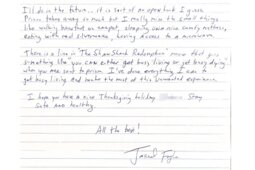 I'll do in the future... it is sort of an open book I guess.
Prison takes away so much but I really miss the small things
like using housted on carpet, sleeping on nice comfy mattress,
eating with real silverware, having access to a microwave.
There is a line in "The Shawshank Redemption" movie that goes
something like "you can either get busy living or get busy dying"
when you are sent to prison. I've done everything I can to
get busy living and make the most of this unwanted experience.
I hope you have a nice Thanksgiving holiday Stay
safe and healthy.
All the best!
Jared Fogle